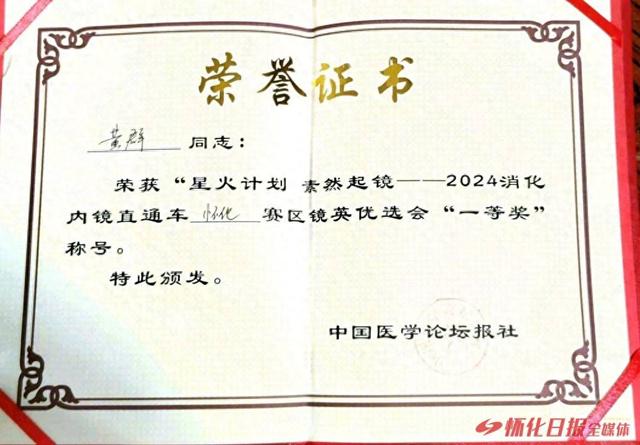 荣誉证书
黄群 同志：
荣获“星火计划 素然起镜——2024消化
内镜直通车 怀化 赛区镜英优选会“一等奖”
称号。
特此颁发。
中国医学论坛报社
怀化日报全媒体